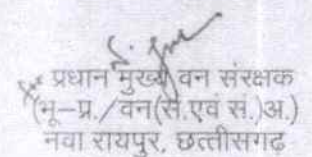 प्रधान मुख्य वन संरक्षक
(भू-प्र./वन(सं.एवं सं.)अ.)
नवा रायपुर, छत्तीसगढ़